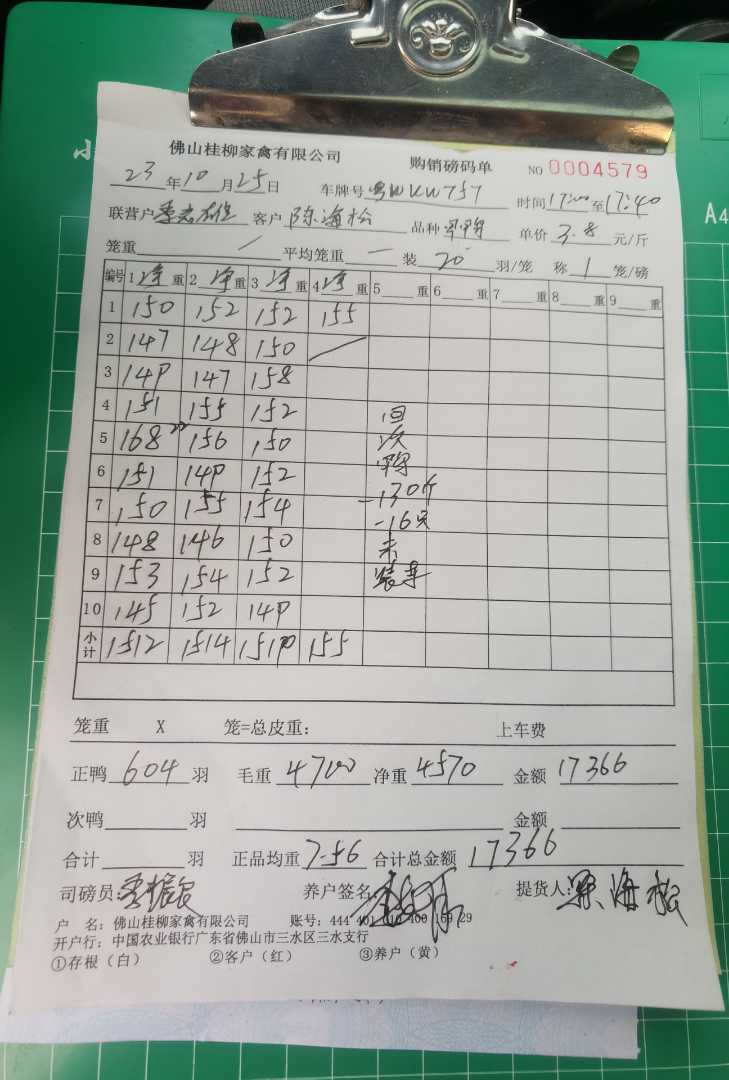 佛山桂柳家禽有限公司 购销磅码单 NO 0004579
23 年 10 月 25 日 车牌号 粤WKW757 时间 17:00 至 17:40
联营户 客户 陈海松 品种 单价 3.8 元/斤
笼重 / 平均笼重 — 装 20 羽/笼 称 1 笼/磅
编号 1 净 重 2 净 重 3 净 重 4 净 重 5 重 6 重 7 重 8 重 9 重
1 150 152 152 155
2 147 148 150 /
3 149 147 158
4 151 155 152 回
5 168 22 156 150 次
6 151 149 152 鸭
7 150 155 154 -130斤
8 148 146 150 -16只 未
9 153 154 152 装车
10 145 152 149
小计 1512 1514 1519 155
笼重 X 笼=总皮重: 上车费
正鸭 604 羽 毛重 4700 净重 4570 金额 17366
次鸭 羽 金额
合计 羽 正品均重 7.56 合计总金额 17366
司磅员: 李振良 养户签名 提货人: 海松
户 名: 佛山桂柳家禽有限公司 账号: 444 401 
开户行: 中国农业银行广东省佛山市三水区三水支行
①存根(白) ②客户(红) ③养户(黄)
A4